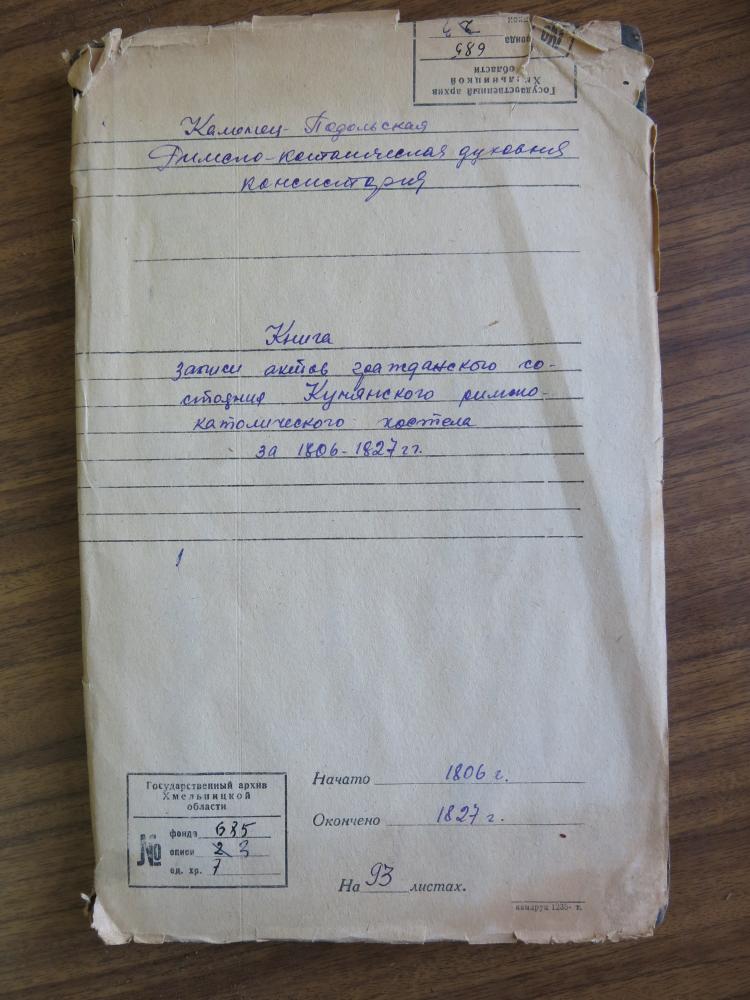 Государственный архив
Хмельницкой
области
№ фонда 685
описи 2
Каменец-Подольская
Римско-католическая духовная
консистория
Книга
записи актов гражданского со-
стояния Кунянского римско-
католического костела
за 1806-1827 гг.
1
Начато 1806 г.
Окончено 1827 г.
На 93 листах.
Государственный архив
Хмельницкой
области
№ фонда 685
описи 2 3
ед. хр. 7